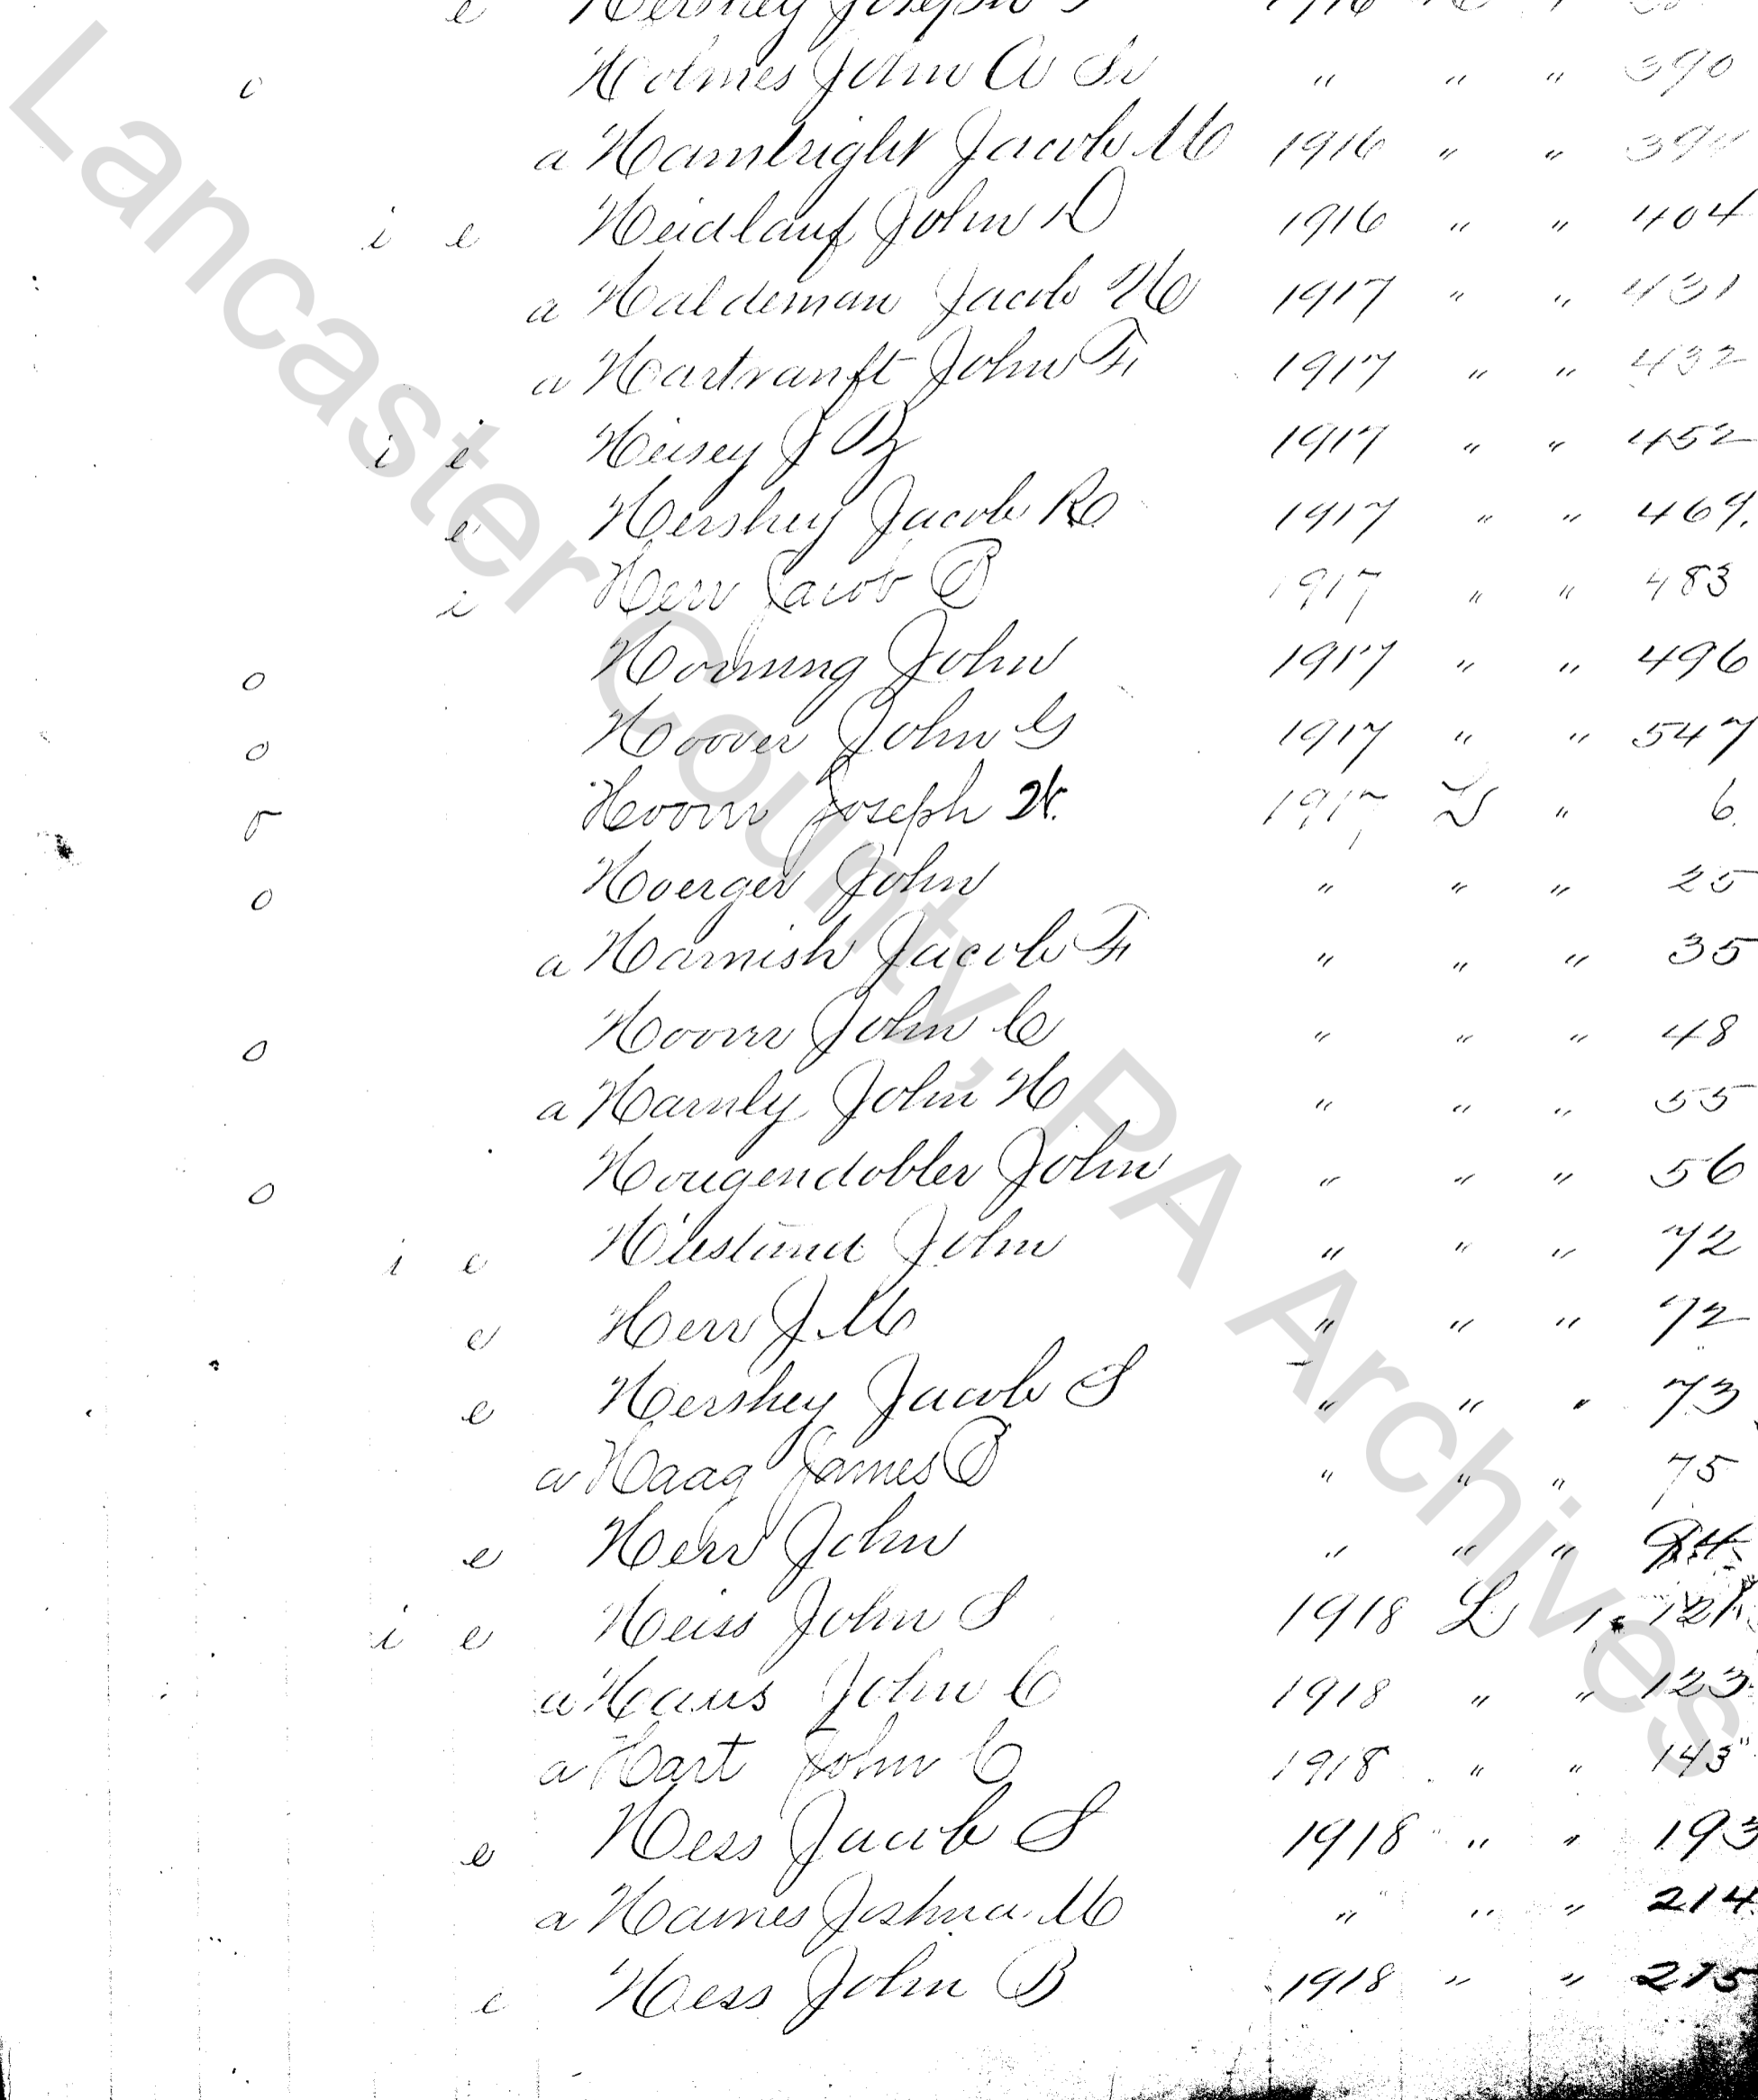 e Hershey Joseph 1916
o Holmes John A Sr " " " 390
a Hambright Jacob M 1916 " " 394
i e Heidlauf John D 1916 " " 404
a Haldeman Jacob H 1917 " " 431
a Hartranft John F. 1917 " " 432
i e Heisey J B 1917 " " 452
e Hershey Jacob R 1917 " " 469.
i Herr Jacob B 1917 " " 483
o Horning John 1917 " " 496
o Hoover John G 1917 " " 547
o Hoover Joseph H. 1917 " 6.
o Hoerger John " " " 25
a Harnish Jacob F. " " " 35
o Hoover John C " " " 48
a Harnly John H " " " 55
o Hougendobler John " " " 56
i e Hiestand John " " " 72
e Herr J. M " " " 72
e Hershey Jacob S " " " 73
a Haag James B " " " 75
e Herr John " " "
i e Heiss John S 1918 L 1 121
a Haus John C 1918 " " 123
a Hart John C 1918 " " 143
e Hess Jacob S 1918 " " 193
a Haines Joshua M " " " 214
e Hess John B 1918 " " 215
Lancaster County, PA Archives